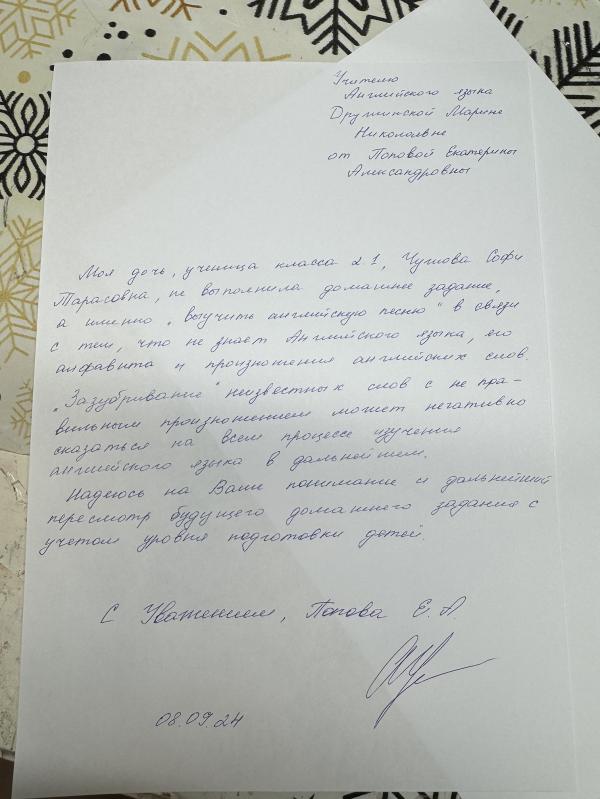 Учителю
Английского языка
Дружинской Марине
Николаевне
от Поповой Екатерины
Александровны
Моя дочь, ученица класса 2.1, Чушова Софи
Тарасовна, не выполнила домашнее задание,
а именно „выучить английскую песню" в связи
с тем, что не знает Английского языка, его
алфавита и произношения английских слов.
„Зазубривание" неизвестных слов с не пра-
вильным произношением может негативно
сказаться на всем процессе изучения
английского языка в дальнейшем.
Надеюсь на Ваше понимание и дальнейший
пересмотр будущего домашнего задания с
учетом уровня подготовки детей.
С Уважением, Попова Е. А.
08.09.24